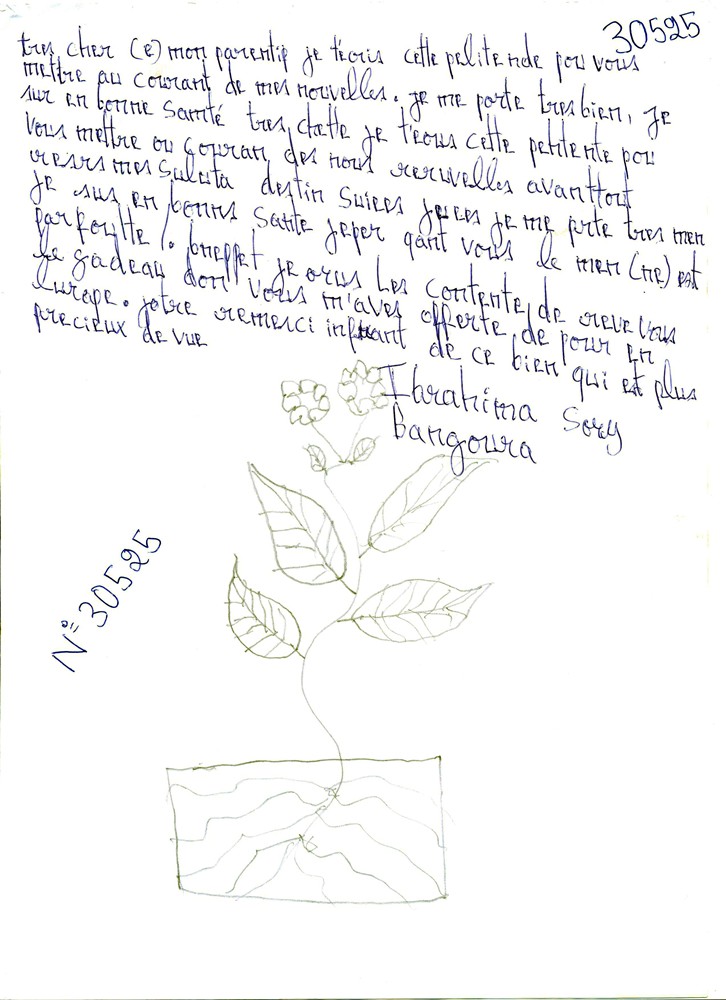 30525
tres cher (e) mon parentip je t'ecris cette petite nde pou vous
mettre au courant de mes nouvelles. je me porte tres bien, je
sur en bonne Samté tres chatte je t'ecus cette petitente pou
vous mettre ou couran des nous reruvelles avanttout
mes saluta destin Suices je me prte tres men
je sus en bonns Sante jeper qant vous le men (ne) est
par foutte
le gadeau don vous m'aves offerte de pour en
Europe. remerci infuant de ce bien qui est plus
precieux de vue
Ibrahima Sory
Bangoura
N° 30525